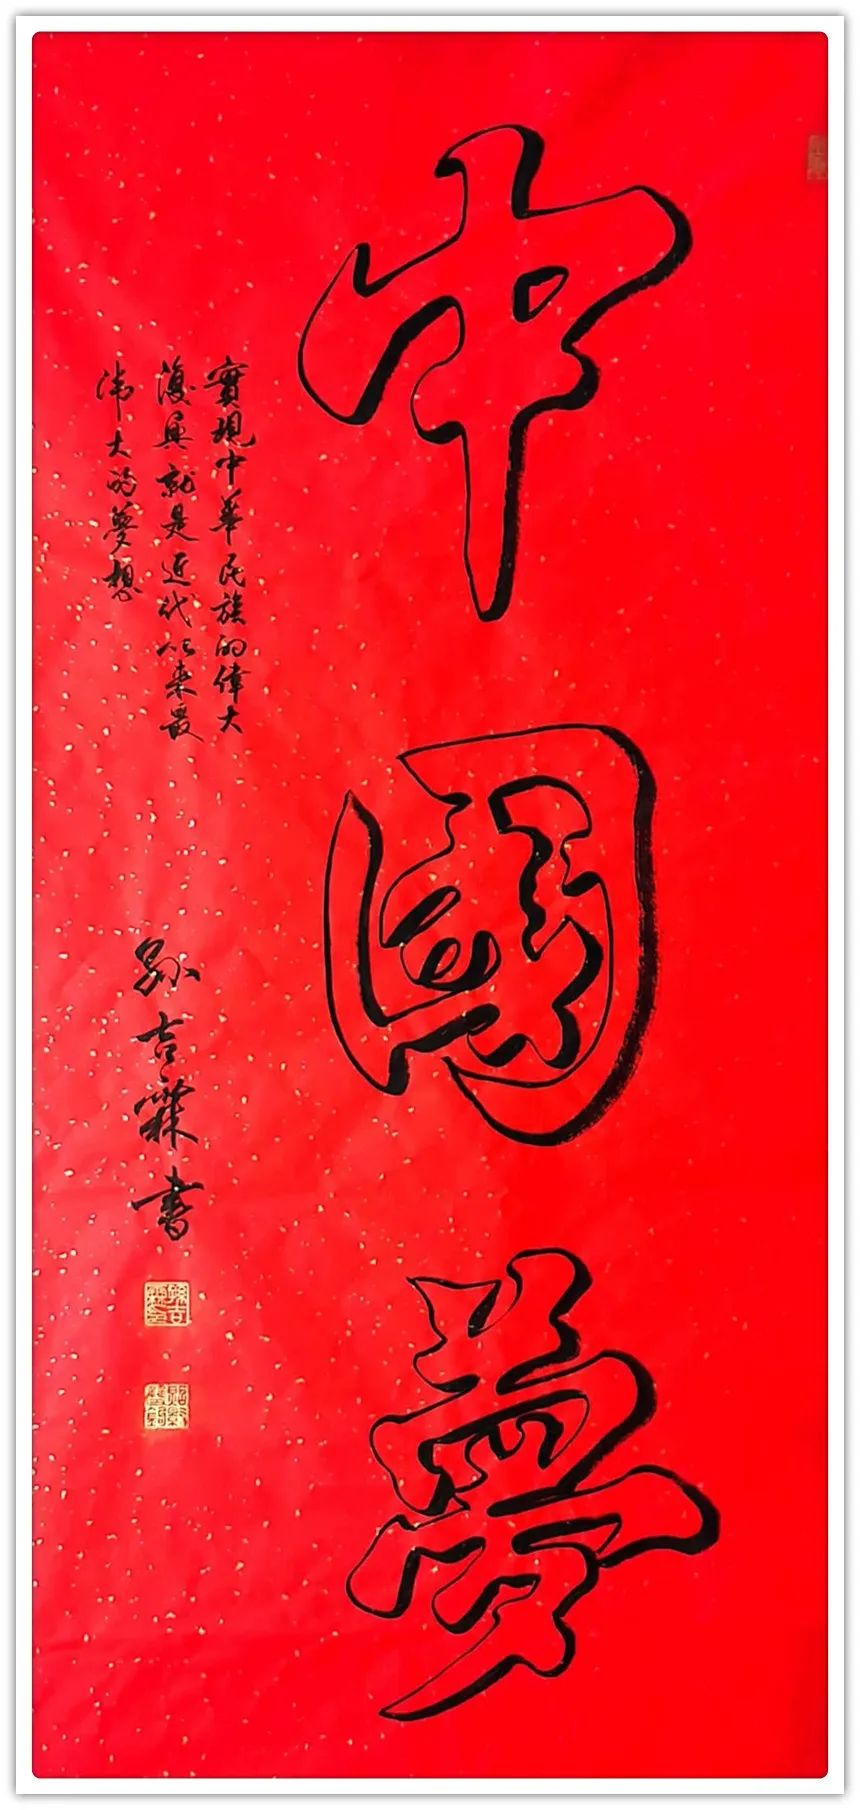 中國夢
實現中華民族的偉大
復興就是近代以來最
偉大的夢想
孫吉霖書